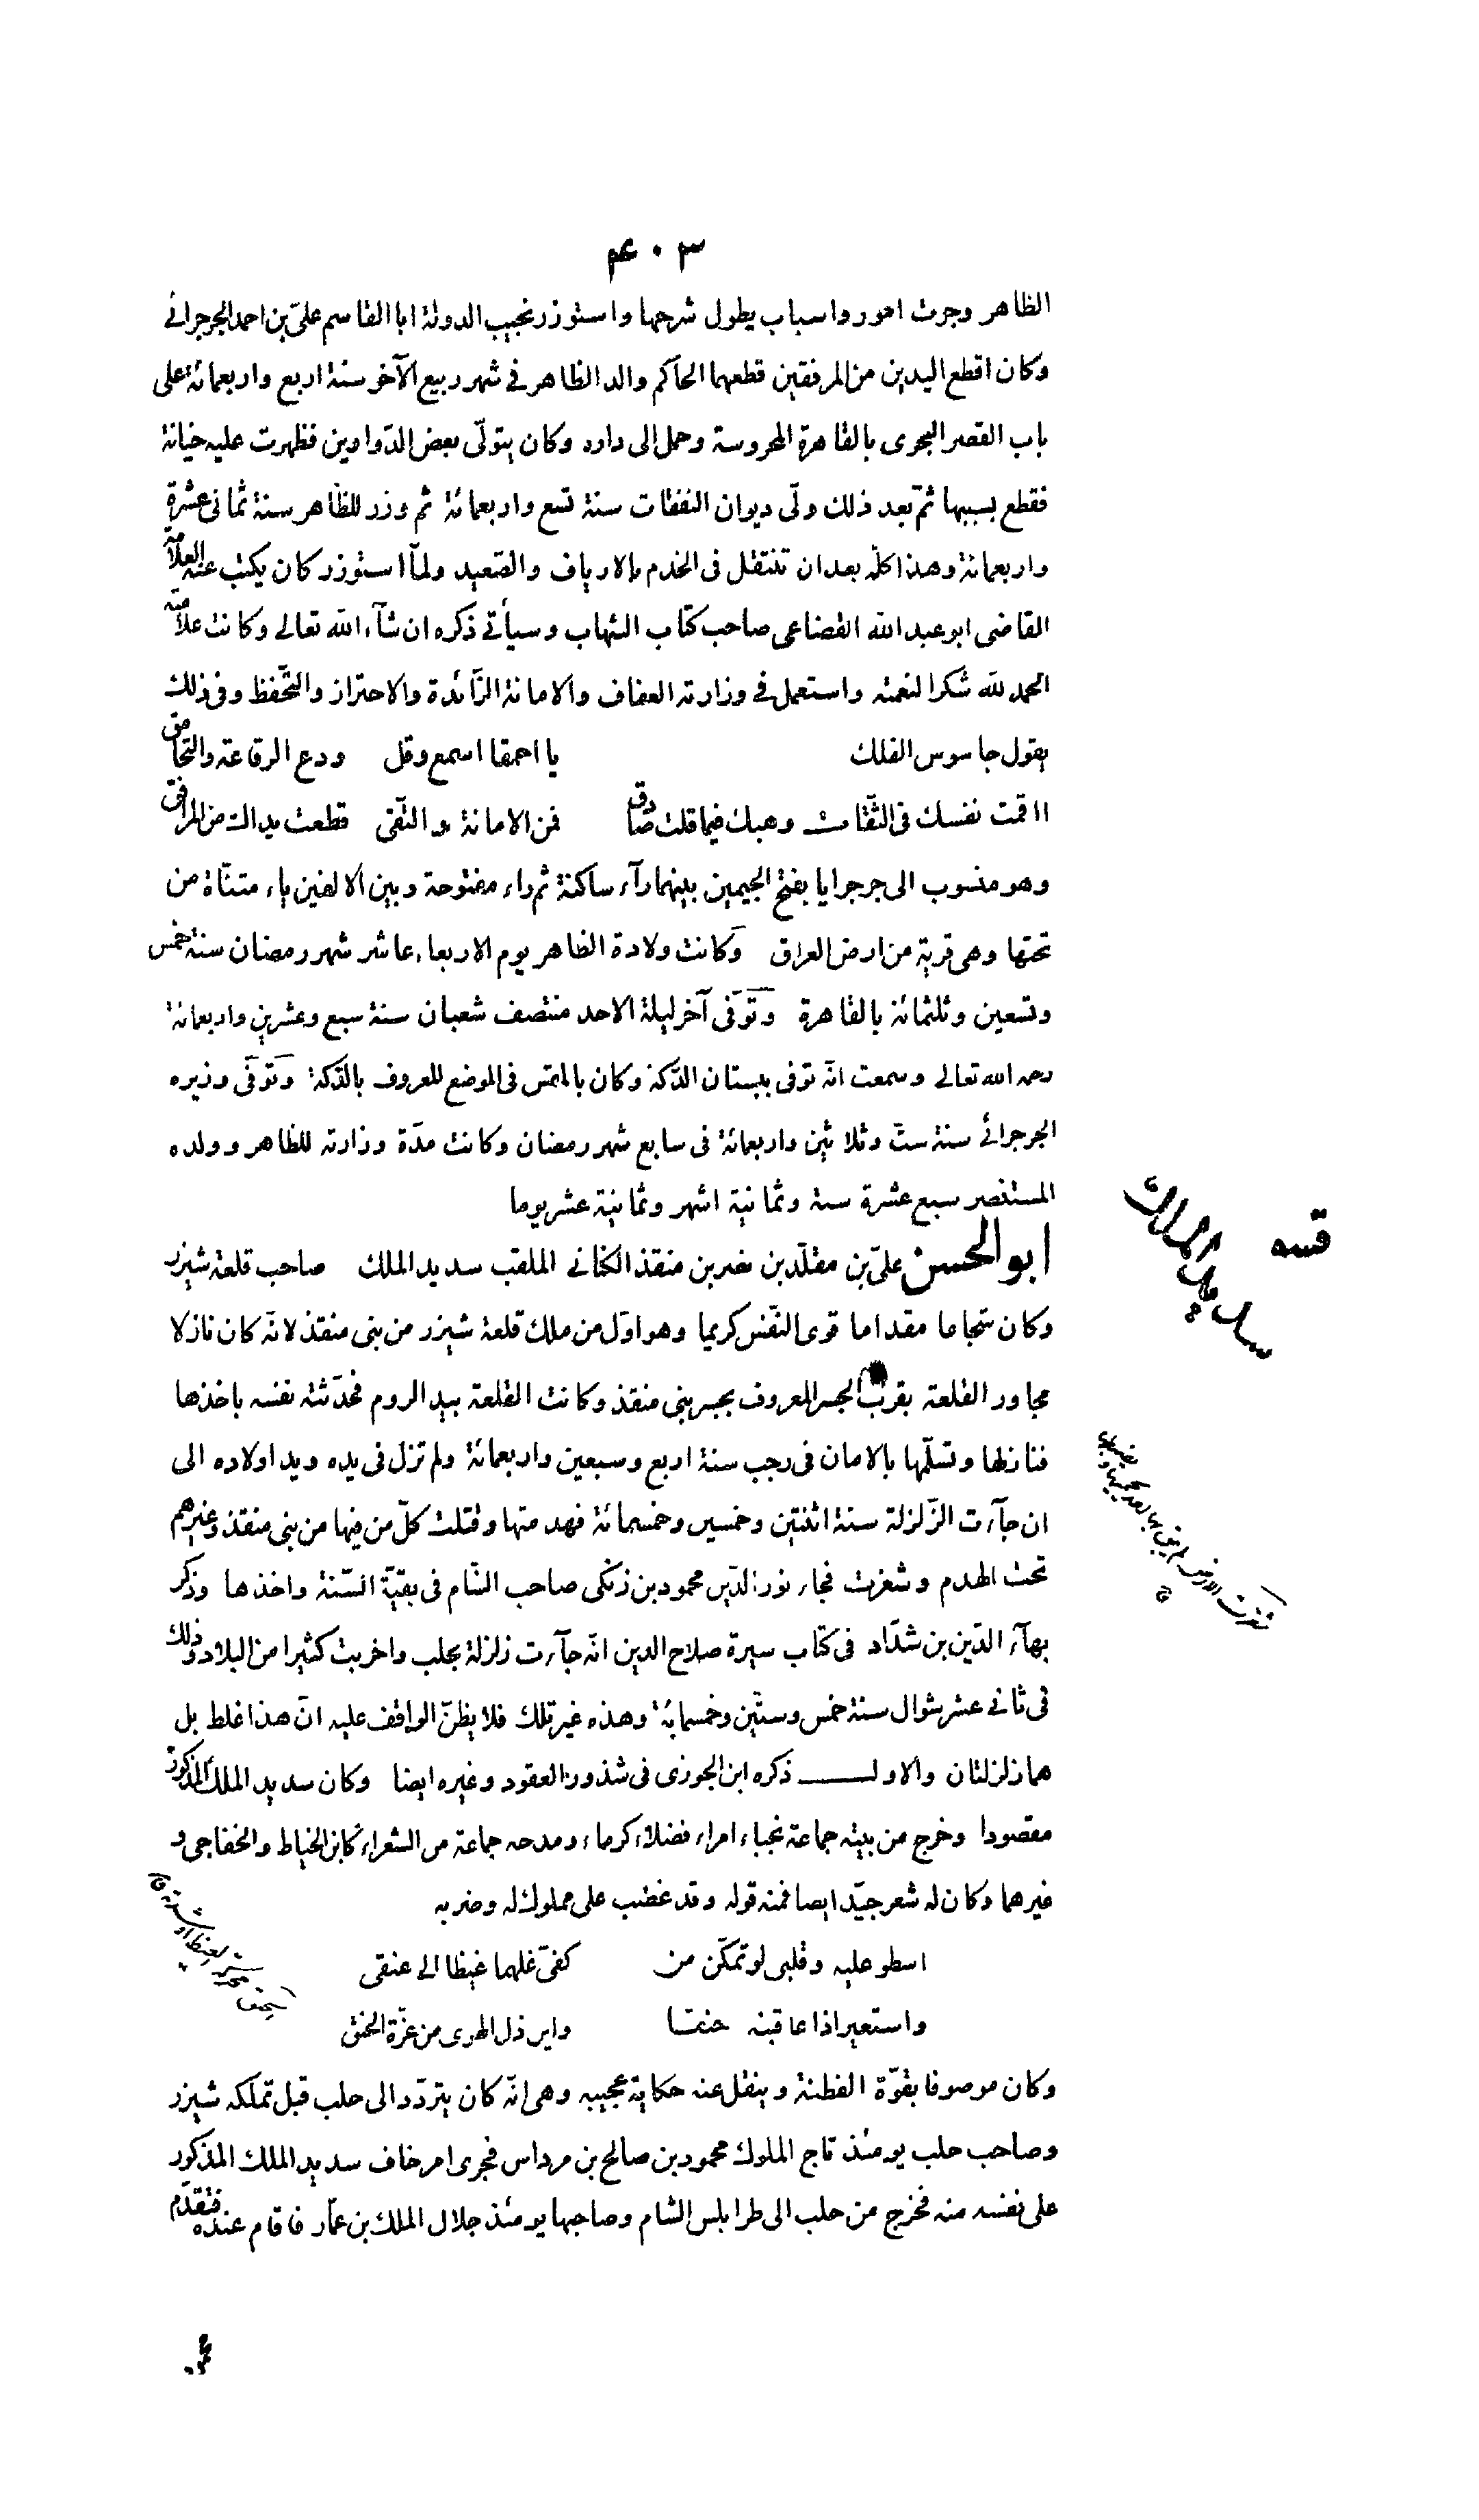 ۴۰۳
الظاهر وجرت امور واسباب يطول شرحها واستوزر نجيب الدولة ابا القاسم علىّ بن احمد الجرجرائى
وكان اقطع اليدين من المرفقين قطعهما الحاكم والد الظاهر فى شهر ربيع الآخر سنة اربع واربعمائة على
باب القصر البحرى بالقاهرة المحروسة وحمل الى داره وكان يتولّى بعض الدّواوين فظهرت عليه خيانة
فقطع بسببها ثمّ بعد ذلك ولّى ديوان النفقات سنة تسع واربعمائة ثم وزر للظّاهر سنة ثمانى عشرة
واربعمائة وهذا كلّه بعد ان تنتقل فى الخدم بالارياف والصّعيد ولمّا استوزر كان يكتب عنه العلامة
القاضى ابو عبد الله القضاعى صاحب كتاب الشهاب وسيأتى ذكره ان شآء الله تعالى وكانت علامته
الحمد لله شكرا لنعمته واستعمل فى وزارته العفاف والامانة الزّائدة والاحتراز والتّحفّظ وفى ذلك
يقول جاسوس الفلك يا احمقا اسمع وقل ودع الرقاعة والتحامق
ااقمت نفسك فى الثّقات وهبك فيما قلت صادق فمن الامانة والتّقى قطعت يداك من المرافق
وهو منسوب الى جرجرايا بفتح الجيمين بينهما رآء ساكنة ثم راء مفتوحة وبين الالفين ياء مثنّاة من
تحتها وهى قرية من ارض العراق وكانت ولادة الظاهر يوم الاربعاء عاشر شهر رمضان سنة خمس
وتسعين وثلثمائة بالقاهرة وتوفّى آخر ليلة الاحد منتصف شعبان سنة سبع وعشرين واربعمائة
رحمه الله تعالى وسمعت انّه توفى ببستان الدّكة وكان بالمقس فى الموضع المعروف بالدّكة وتوفّى وزيره
الجرجرائى سنة ستّ وثلاثين واربعمائة فى سابع شهر رمضان وكانت مدّة وزارته للظاهر وولده
المستنصر سبع عشرة سنة وثمانية اشهر وثمانية عشر يوما
قصه سديد الملك
ابو الحسن علىّ بن مقلّد بن نصر بن منقذ الكنانى الملقب سديد الملك صاحب قلعة شيزر
وكان شجاعا مقداما قوى النّفس كريما وهو اوّل من ملك قلعة شيزر من بنى منقذ لانّه كان نازلا
مجاور القلعة بقرب الجسر المعروف بجسر بنى منقذ وكانت القلعة بيد الروم فحدّثته نفسه باخذها
فنازلها وتسلّمها بالامان فى رجب سنة اربع وسبعين واربعمائة ولم تزل فى يده ويد اولاده الى
ان جآءت الزّلزلة سنة اثنتين وخمسين وخمسمائة فهدمتها وقتلت كلّ من فيها من بنى منقذ وغيرهم
تحت الهدم وشغرت فجاء نور الدّين محمود بن زنكى صاحب الشام فى بقيّة السّنة واخذها وذكر
بهآء الدّين بن شدّاد فى كتاب سيرة صلاح الدين انّه جآءت زلزلة بحلب واخربت كثيرا من البلاد وذلك
فى ثانى عشر شوال سنة خمس وستّين وخمسمائة وهذه غير تلك فلا يظنّ الواقف عليه انّ هذا غلط بل
هما زلزلتان والاول ذكره ابن الجوزى فى شذور العقود وغيره ايضا وكان سديد الملك المذكور
مقصودا وخرج من بيته جماعة نجباء امراء فضلاء كرماء ومدحه جماعة من الشعراء كابن الخياط والخفاجى و
غيرهما وكان له شعر جيّد ايضا فمنه قوله وقد غضب على مملوك له وضربه
اسطو عليه وقلبى لو تمكّن من كفىّ غلهما غيظا الى عنقى
واستعير اذا عاقبته حنقا واين ذل الهوى من عزّة الحنق
وكان موصوفا بقوّة الفطنة وينقل عنه حكاية عجيبه وهى انّه كان يتردّد الى حلب قبل تملّكه شيزر
وصاحب حلب يومئذ تاج الملوك محمود بن صالح بن مرداس فجرى امر خاف سديد الملك المذكور
على نفسه منه فخرج من حلب الى طرابلس الشام وصاحبها يومئذ جلال الملك بن عمّار فاقام عنده فتقدّم